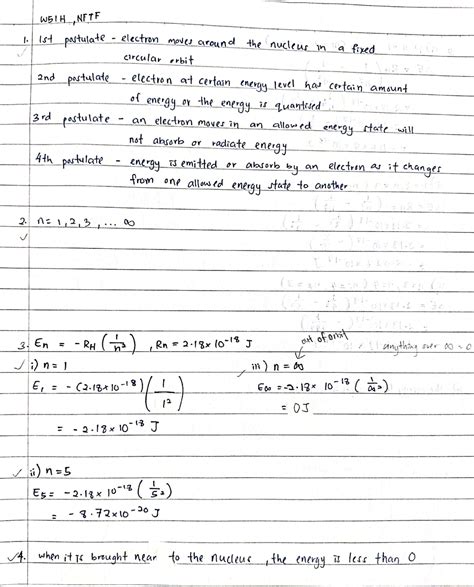 W51H, NFTF
1. 1st postulate - electron moves around the nucleus in a fixed
circular orbit
2nd postulate - electron at certain energy level has certain amount
of energy or the energy is quantised
3rd postulate - an electron moves in an allowed energy state will
not absorb or radiate energy
4th postulate - energy is emitted or absorb by an electron as it changes
from one allowed energy state to another
2. n = 1, 2, 3, ... ∞
3. En = -RH (1/n²), Rn = 2.18 × 10⁻¹⁸ J
out of orbit
anything over ∞ = 0
i) n = 1
E₁ = -(2.18×10⁻¹⁸)(1/1²)
= -2.18×10⁻¹⁸ J
iii) n = ∞
E∞ = -2.18× 10⁻¹⁸ (1/∞²)
= 0J
ii) n = 5
E₅ = -2.18 × 10⁻¹⁸ (1/5²)
= -8.72×10⁻²⁰ J
4. when it is brought near to the nucleus, the energy is less than 0